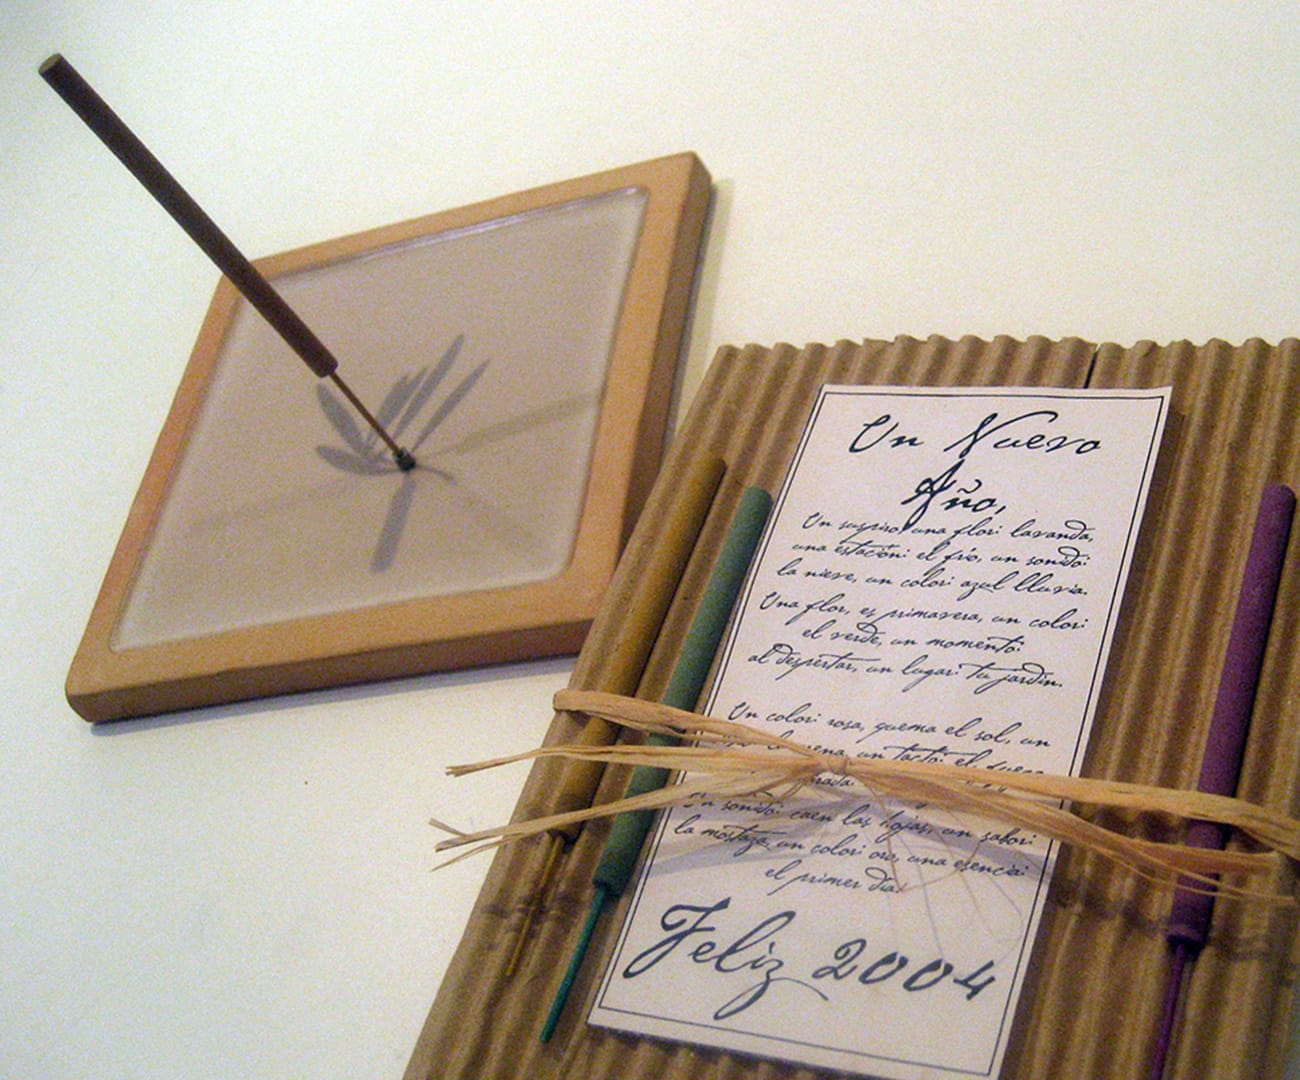 Un Nuevo
Año,
Un suspiro una flor: lavanda,
una estación: el frío, un sonido:
la nieve, un color: azul lluvia.
Una flor, es primavera, un color:
el verde, un momento:
al despertar, un lugar: tu jardín.
Un color: rosa, quema el sol, un
un tacto: el
un sonido: caen las hojas, un sabor:
la mostaza, un color: oro, una esencia:
el primer día.
Feliz 2004